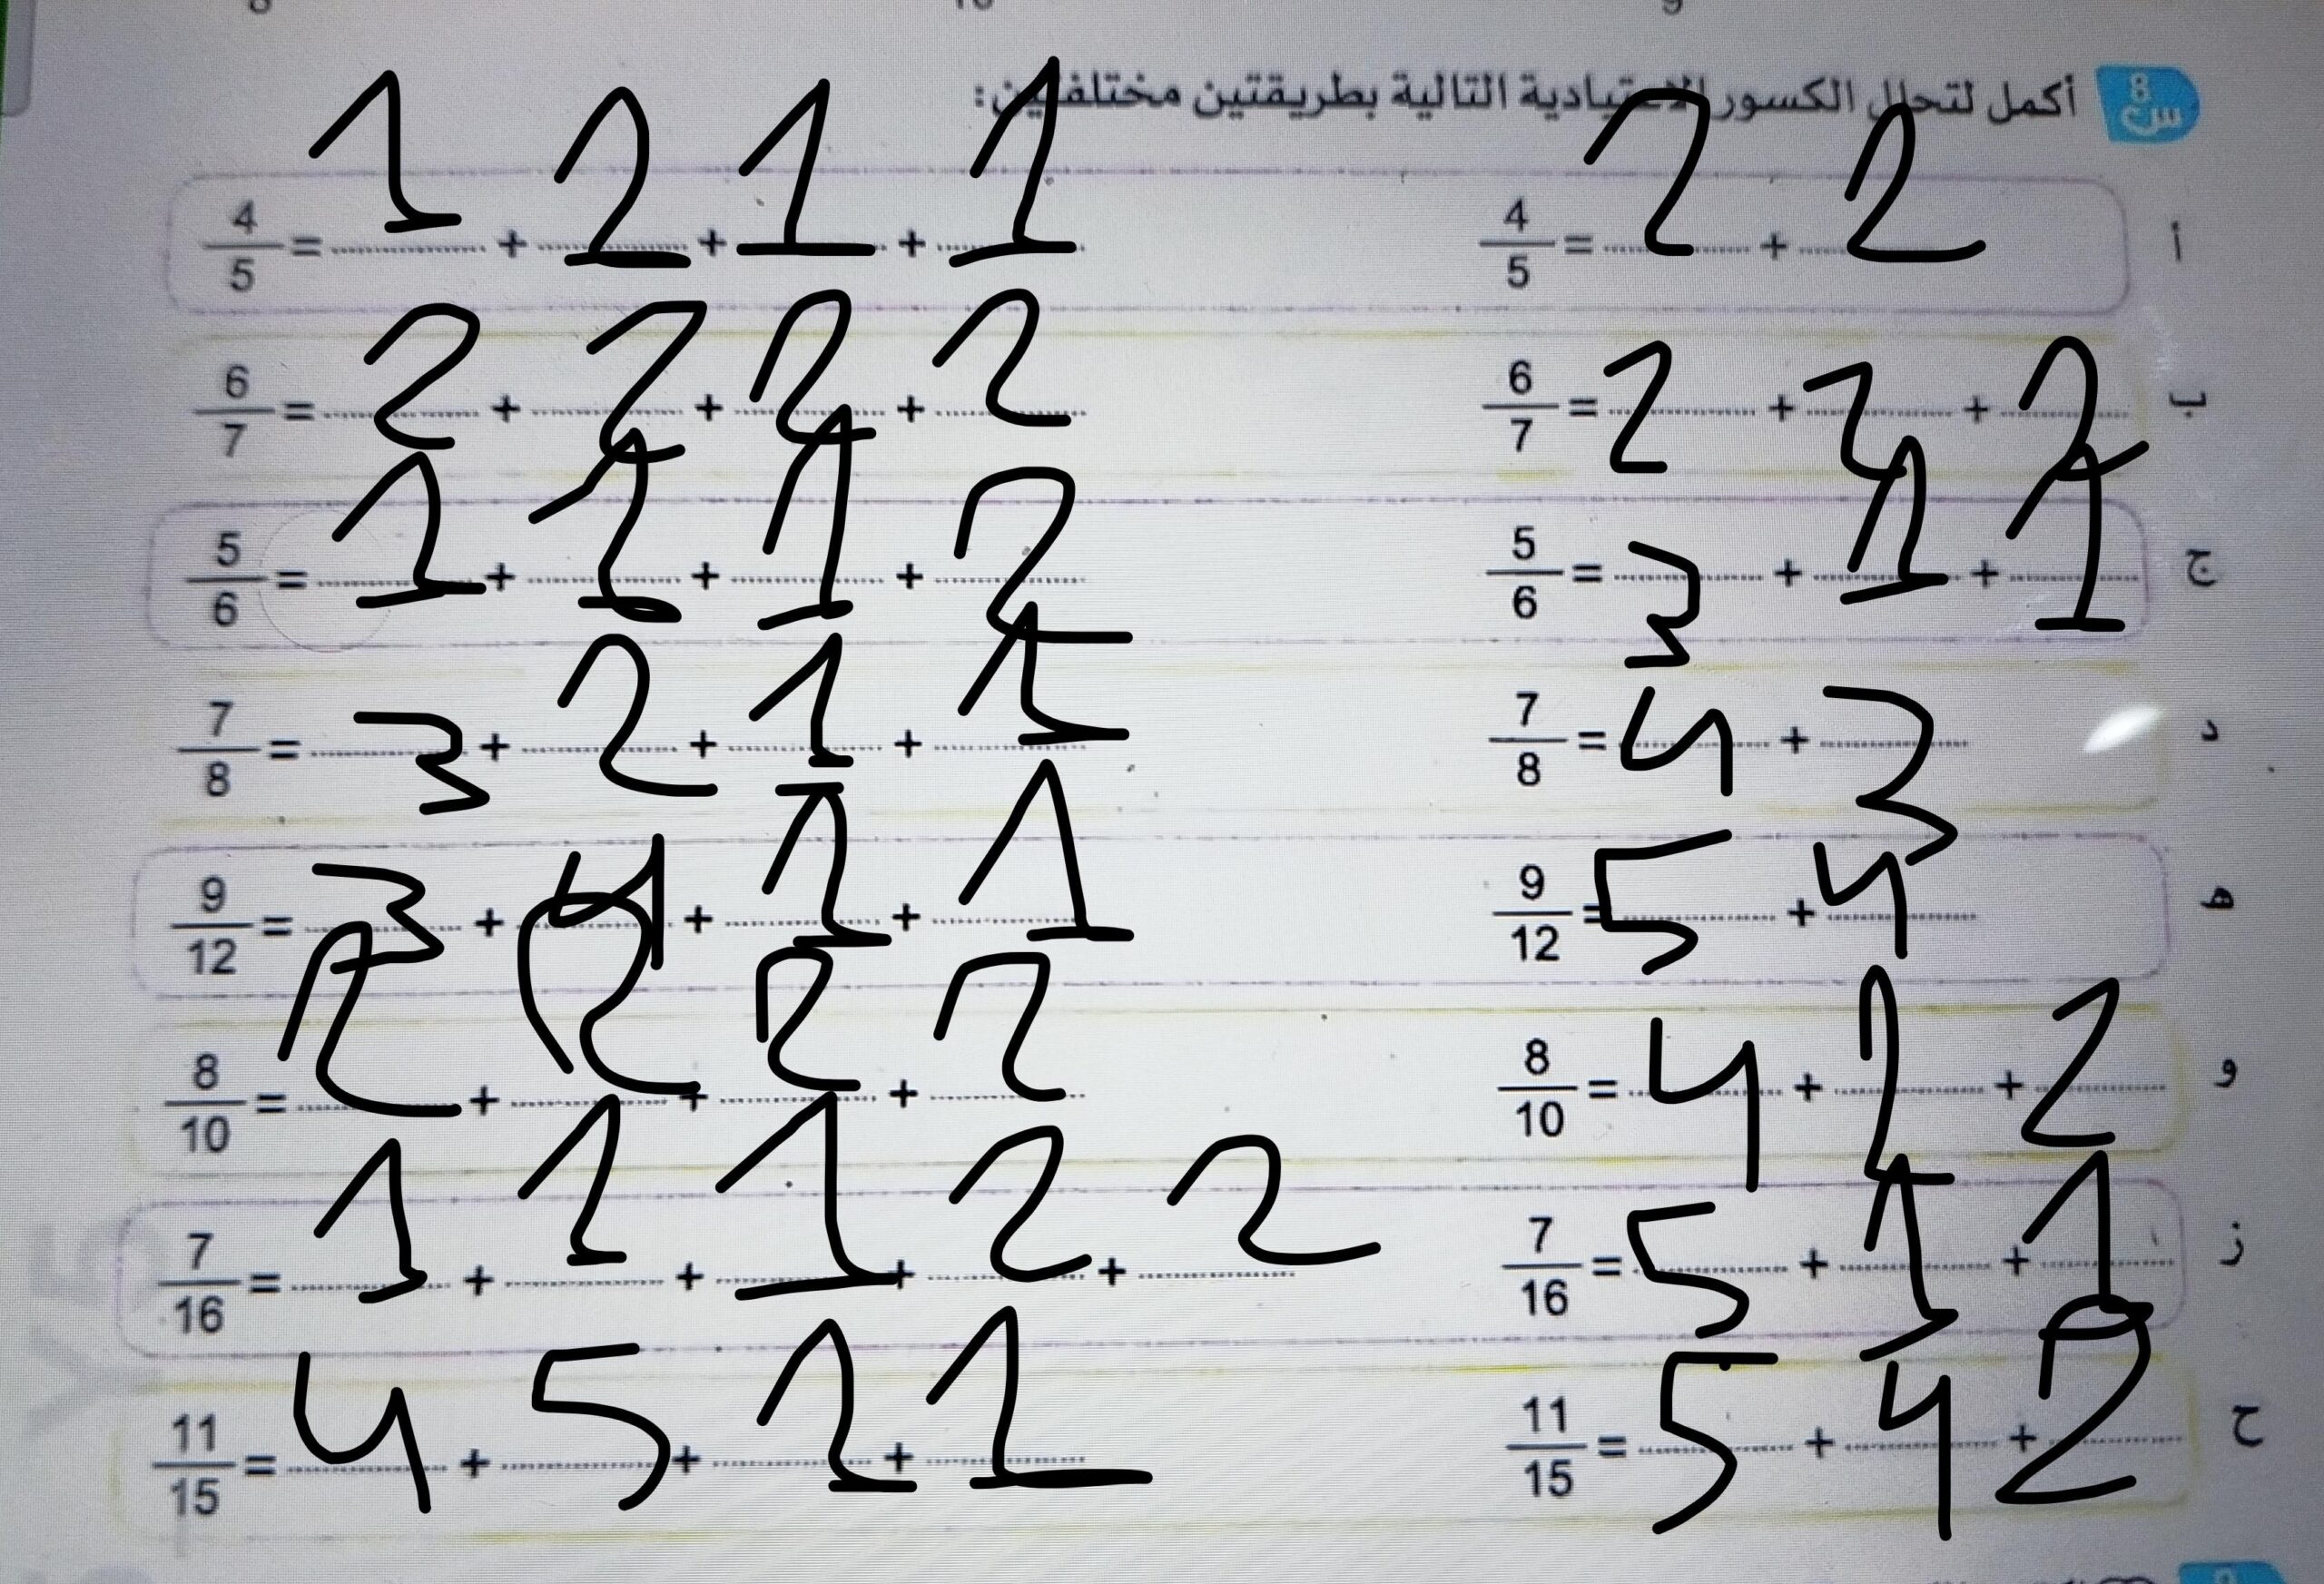 س 8 أكمل لتحلل الكسور الاعتيادية التالية بطريقتين مختلفتين:
أ 4/5 = 2 + 2
4/5 = 1 + 2 + 1 + 1
ب 6/7 = 2 + 2 + 2
6/7 = 2 + 2 + 2 + 2
ج 5/6 = 3 + 1 + 1
5/6 = 1 + 1 + 1 + 2
د 7/8 = 4 + 3
7/8 = 3 + 2 + 1 + 1
هـ 9/12 = 5 + 4
9/12 = 3 + 4 + 1 + 1
و 8/10 = 4 + 2 + 2
8/10 = 2 + 2 + 2 + 2
ز 7/16 = 5 + 1 + 1
7/16 = 1 + 1 + 1 + 2 + 2
ح 11/15 = 5 + 4 + 2
11/15 = 4 + 5 + 1 + 1